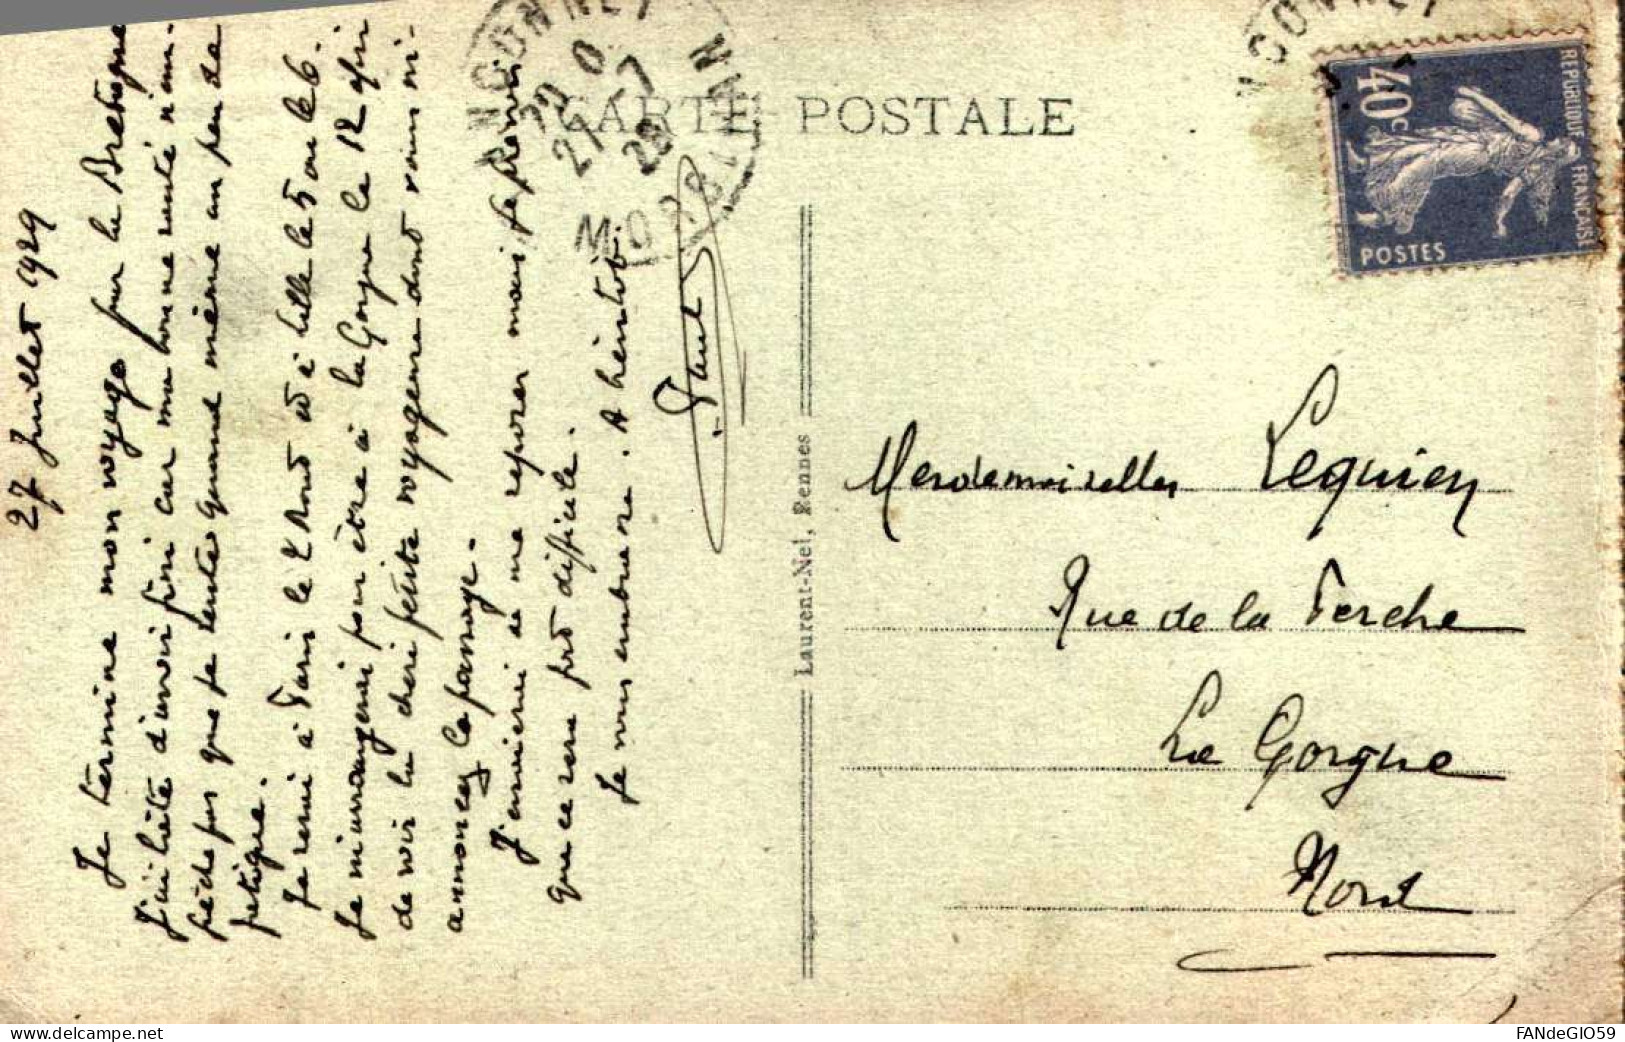 27 Juillet 1929
Je termine mon voyage par la Bretagne
J'ai hâte d'avoir fini car ma bonne santé n'em-
pêche pas que je sente quand même un peu la
fatigue.
Je serai à Paris le 2 Aout et à Lille le 5 ou le 6.
Je m'arrangerai pour être à la Gorgue le 12 afin
de voir la chère petite voyageuse dont vous m'
annoncez le passage.
J'aimerai à me reposer mais je prévois
que ce sera fort difficile.
Je vous embrasse. A bientôt.
Paul
CARTE POSTALE
MORBIHAN
27-7
29
Laurent-Nel, Rennes
REPUBLIQUE FRANCAISE
40c
POSTES
Mesdemoiselles Lequien
Rue de la Perche
La Gorgue
Nord
www.delcampe.net
FANdeGIO59